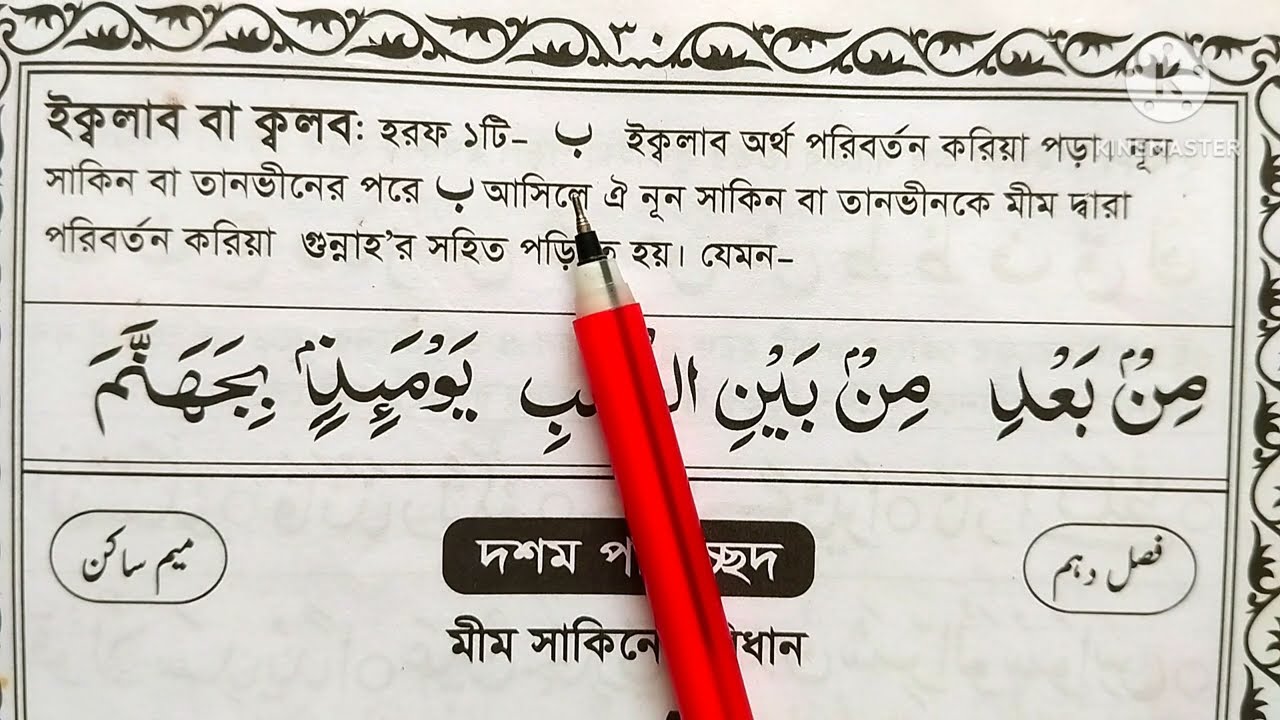 ٣٠
ইক্বলাব বা ক্বলব: হরফ ১টি- ب ইক্বলাব অর্থ পরিবর্তন করিয়া পড়া। নূন
সাকিন বা তানভীনের পরে ب আসিলে ঐ নূন সাকিন বা তানভীনকে মীম দ্বারা
পরিবর্তন করিয়া গুন্নাহ'র সহিত হয়। যেমন-
مِنْۢ بَعْدِ مِنْۢ بَيْنِ يَوْمَئِذٍۭ بِجَهَنَّمَ
فصل دہم
দশম
میم ساکن
মীম
KINEMASTER